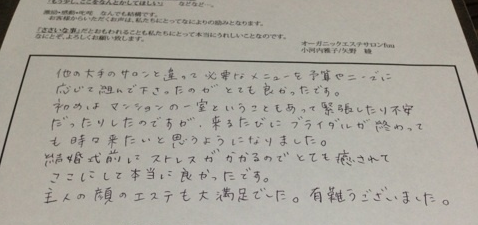 『もう少し、ここをなんとかしてほしい』 などなど…
激励・感動・叱咤 なんでも結構です。
お客様からいただくお声は、私たちにとってなによりの励みとなります。
『ささいな事』だとおもわれることも私たちにとって本当にうれしいことなのです。
なにとぞ、よろしくお願い致します。
オーガニックエステサロンfuu
小河内雅子/矢野 綾
他の大手のサロンと違って必要なメニューを予算やニーズに
応じて組んで下さったのがとても良かったです。
初めはマンションの一室ということもあって緊張したり不安
だったりしたのですが、来るたびにブライダルが終わって
も時々来たいと思うようになりました。
結婚式前にストレスがかかるのでとても癒されて
ここにして本当に良かったです。
主人の顔のエステも大満足でした。有難うございました。